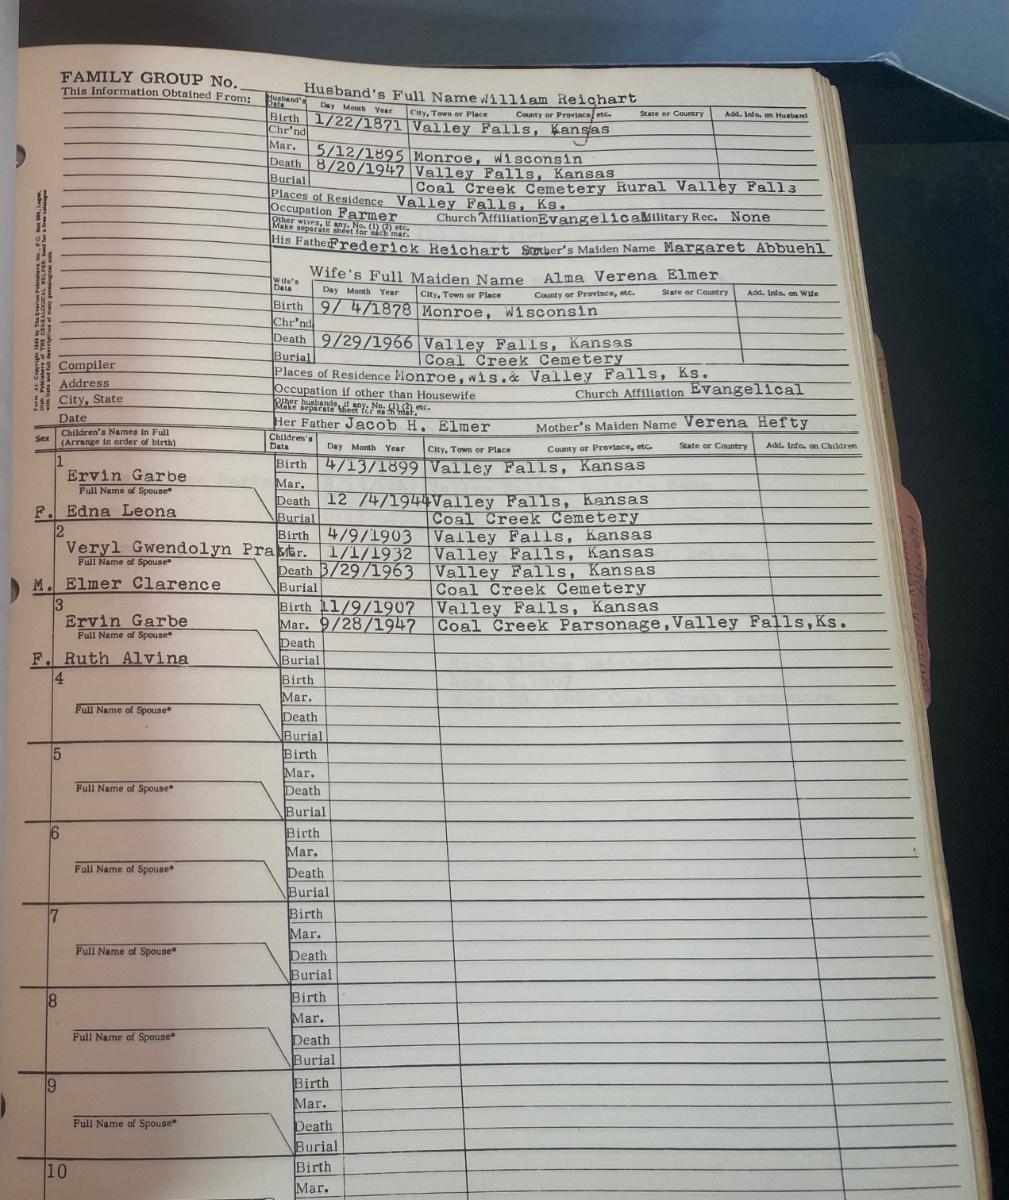 FAMILY GROUP No.
This Information Obtained From:
Husband's Full Name William Reichart
Husband's Data Day Month Year City, Town or Place County or Province, etc. State or Country Add. Info. on Husband
Birth 1/22/1871 Valley Falls, Kansas
Chr'nd
Mar. 5/12/1895 Monroe, Wisconsin
Death 8/20/1947 Valley Falls, Kansas
Burial Coal Creek Cemetery Rural Valley Falls
Places of Residence Valley Falls, Ks.
Occupation Farmer Church Affiliation Evangelical Military Rec. None
Other wives, if any. No. (1) (2) etc.
Make separate sheet for each mar.
His Father Frederick Reichart Mother's Maiden Name Margaret Abbuehl
Wife's Full Maiden Name Alma Verena Elmer
Wife's Data Day Month Year City, Town or Place County or Province, etc. State or Country Add. Info. on Wife
Birth 9/ 4/1878 Monroe, Wisconsin
Chr'nd
Death 9/29/1966 Valley Falls, Kansas
Burial Coal Creek Cemetery
Places of Residence Monroe, Wis.& Valley Falls, Ks.
Occupation if other than Housewife Church Affiliation Evangelical
Other husbands, if any. No. (1) (2) etc.
Make separate sheet for each mar.
Her Father Jacob H. Elmer Mother's Maiden Name Verena Hefty
Compiler
Address
City, State
Date
Sex Children's Names in Full
(Arrange in order of birth)
Children's Data Day Month Year City, Town or Place County or Province, etc. State or Country Add. Info. on Children
1
Ervin Garbe
Full Name of Spouse*
F. Edna Leona
Birth 4/13/1899 Valley Falls, Kansas
Mar.
Death 12 /4/1944 Valley Falls, Kansas
Burial Coal Creek Cemetery
2
Veryl Gwendolyn
Full Name of Spouse*
M. Elmer Clarence
Birth 4/9/1903 Valley Falls, Kansas
Mar. 1/1/1932 Valley Falls, Kansas
Death 3/29/1963 Valley Falls, Kansas
Burial Coal Creek Cemetery
3
Ervin Garbe
Full Name of Spouse*
F. Ruth Alvina
Birth 11/9/1907 Valley Falls, Kansas
Mar. 9/28/1947 Coal Creek Parsonage, Valley Falls, Ks.
Death
Burial
4
Full Name of Spouse*
Birth
Mar.
Death
Burial
5
Full Name of Spouse*
Birth
Mar.
Death
Burial
6
Full Name of Spouse*
Birth
Mar.
Death
Burial
7
Full Name of Spouse*
Birth
Mar.
Death
Burial
8
Full Name of Spouse*
Birth
Mar.
Death
Burial
9
Full Name of Spouse*
Birth
Mar.
Death
Burial
10
Birth
Mar.